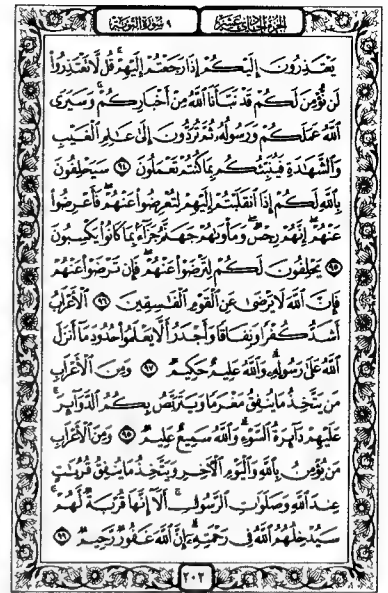 الجزء الحادي عشر
٩ سورة التوبة
يَعْتَذِرُونَ إِلَيْكُمْ إِذَا رَجَعْتُمْ إِلَيْهِمْ ۚ قُل لَّا تَعْتَذِرُوا۟
لَن نُّؤْمِنَ لَكُمْ قَدْ نَبَّأَنَا ٱللَّهُ مِنْ أَخْبَارِكُمْ ۚ وَسَيَرَى
ٱللَّهُ عَمَلَكُمْ وَرَسُولُهُۥ ثُمَّ تُرَدُّونَ إِلَىٰ عَٰلِمِ ٱلْغَيْبِ
وَٱلشَّهَٰدَةِ فَيُنَبِّئُكُم بِمَا كُنتُمْ تَعْمَلُونَ ٩٤ سَيَحْلِفُونَ
بِٱللَّهِ لَكُمْ إِذَا ٱنقَلَبْتُمْ إِلَيْهِمْ لِتُعْرِضُوا۟ عَنْهُمْ ۖ فَأَعْرِضُوا۟
عَنْهُمْ ۖ إِنَّهُمْ رِجْسٌ ۖ وَمَأْوَىٰهُمْ جَهَنَّمُ جَزَآءًۢ بِمَا كَانُوا۟ يَكْسِبُونَ
٩٥ يَحْلِفُونَ لَكُمْ لِتَرْضَوْا۟ عَنْهُمْ ۖ فَإِن تَرْضَوْا۟ عَنْهُمْ
فَإِنَّ ٱللَّهَ لَا يَرْضَىٰ عَنِ ٱلْقَوْمِ ٱلْفَٰسِقِينَ ٩٦ ٱلْأَعْرَابُ
أَشَدُّ كُفْرًا وَنِفَاقًا وَأَجْدَرُ أَلَّا يَعْلَمُوا۟ حُدُودَ مَآ أَنزَلَ
ٱللَّهُ عَلَىٰ رَسُولِهِۦ ۗ وَٱللَّهُ عَلِيمٌ حَكِيمٌ ٩٧ وَمِنَ ٱلْأَعْرَابِ
مَن يَتَّخِذُ مَا يُنفِقُ مَغْرَمًا وَيَتَرَبَّصُ بِكُمُ ٱلدَّوَآئِرَ ۚ
عَلَيْهِمْ دَآئِرَةُ ٱلسَّوْءِ ۗ وَٱللَّهُ سَمِيعٌ عَلِيمٌ ٩٨ وَمِنَ ٱلْأَعْرَابِ
مَن يُؤْمِنُ بِٱللَّهِ وَٱلْيَوْمِ ٱلْءَاخِرِ وَيَتَّخِذُ مَا يُنفِقُ قُرُبَٰتٍ
عِندَ ٱللَّهِ وَصَلَوَٰتِ ٱلرَّسُولِ ۚ أَلَآ إِنَّهَا قُرْبَةٌ لَّهُمْ ۚ
سَيُدْخِلُهُمُ ٱللَّهُ فِى رَحْمَتِهِۦٓ ۗ إِنَّ ٱللَّهَ غَفُورٌ رَّحِيمٌ ٩٩
٢٠٢